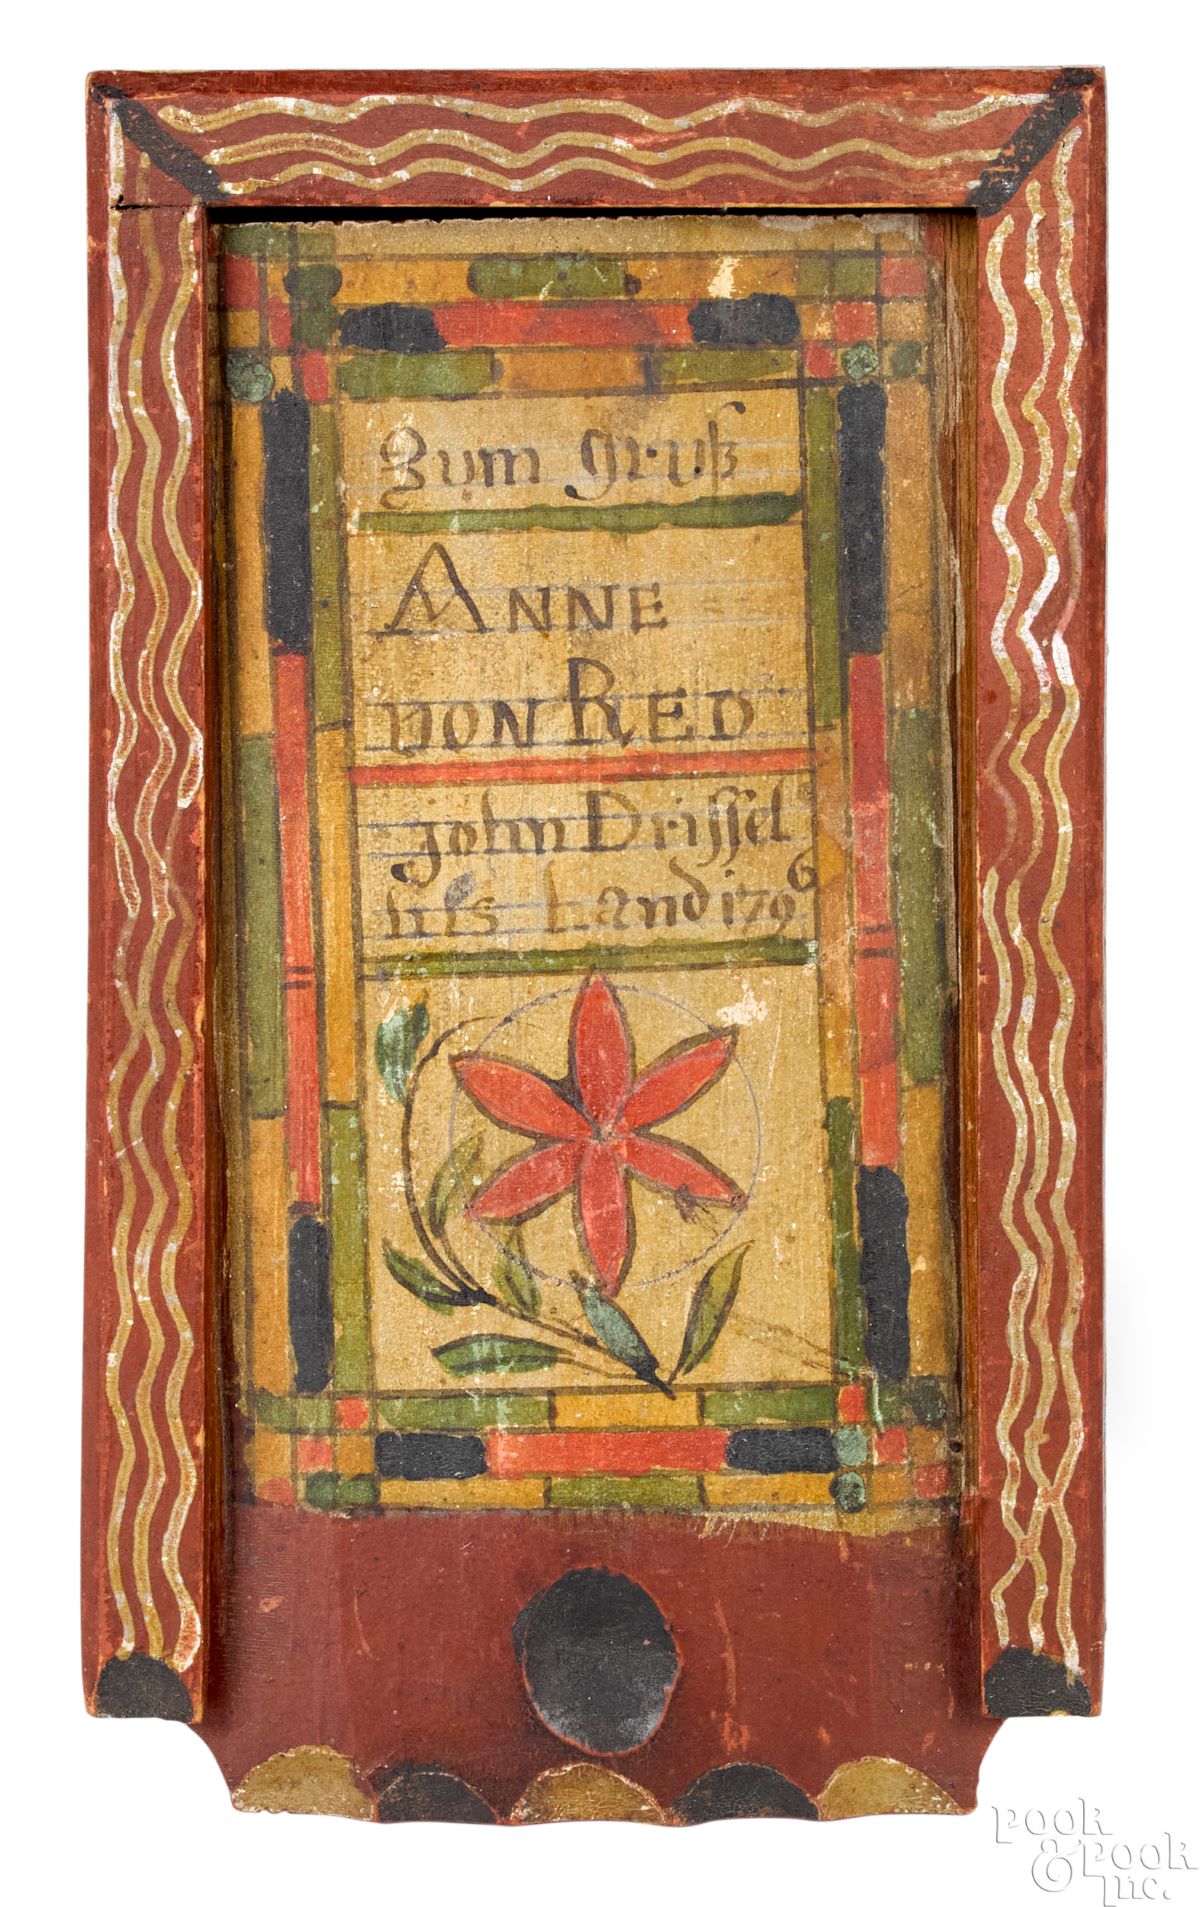 Zum gruß
ANNE
VON RED
john Drissel
his hand 1796
POOK
& POOK
Inc.